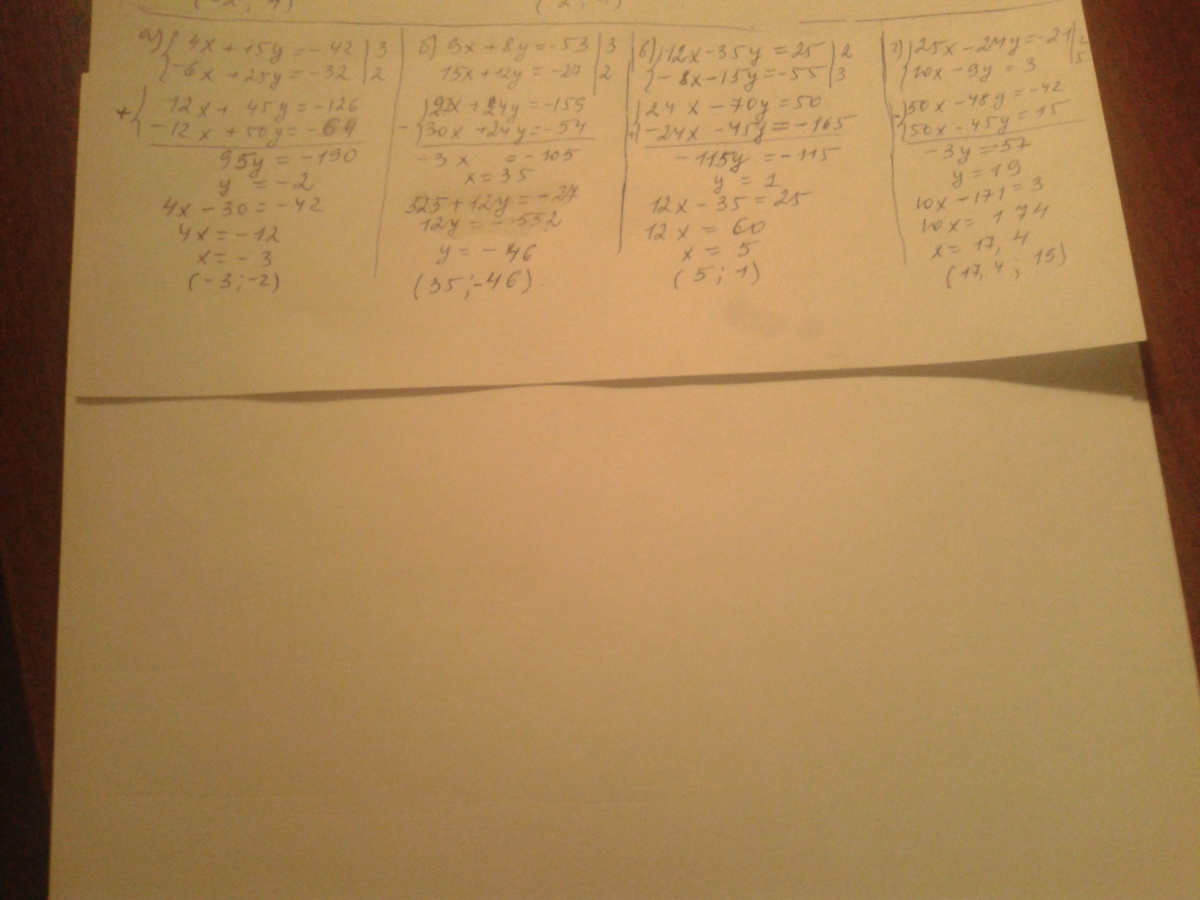 а) { 4x + 15y = -42 | 3
-6x + 25y = -32 | 2
+ { 12x + 45y = -126
-12x + 50y = -64
95y = -190
y = -2
4x - 30 = -42
4x = -12
x = -3
(-3; -2)
б) 9x + 8y = -53 | 3
15x + 12y = -27 | 2
- { 27x + 24y = -159
30x + 24y = -54
-3x = -105
x = 35
525 + 12y = -27
12y = -552
y = -46
(35; -46)
в) { 12x - 35y = 25 | 2
-8x - 15y = -55 | 3
+ { 24x - 70y = 50
-24x - 45y = -165
-115y = -115
y = 1
12x - 35 = 25
12x = 60
x = 5
(5; 1)
г) { 25x - 24y = -21 | 2
10x - 9y = 3 | 5
- { 50x - 48y = -42
50x - 45y = 15
-3y = -57
y = 19
10x - 171 = 3
10x = 174
x = 17,4
(17,4; 19)